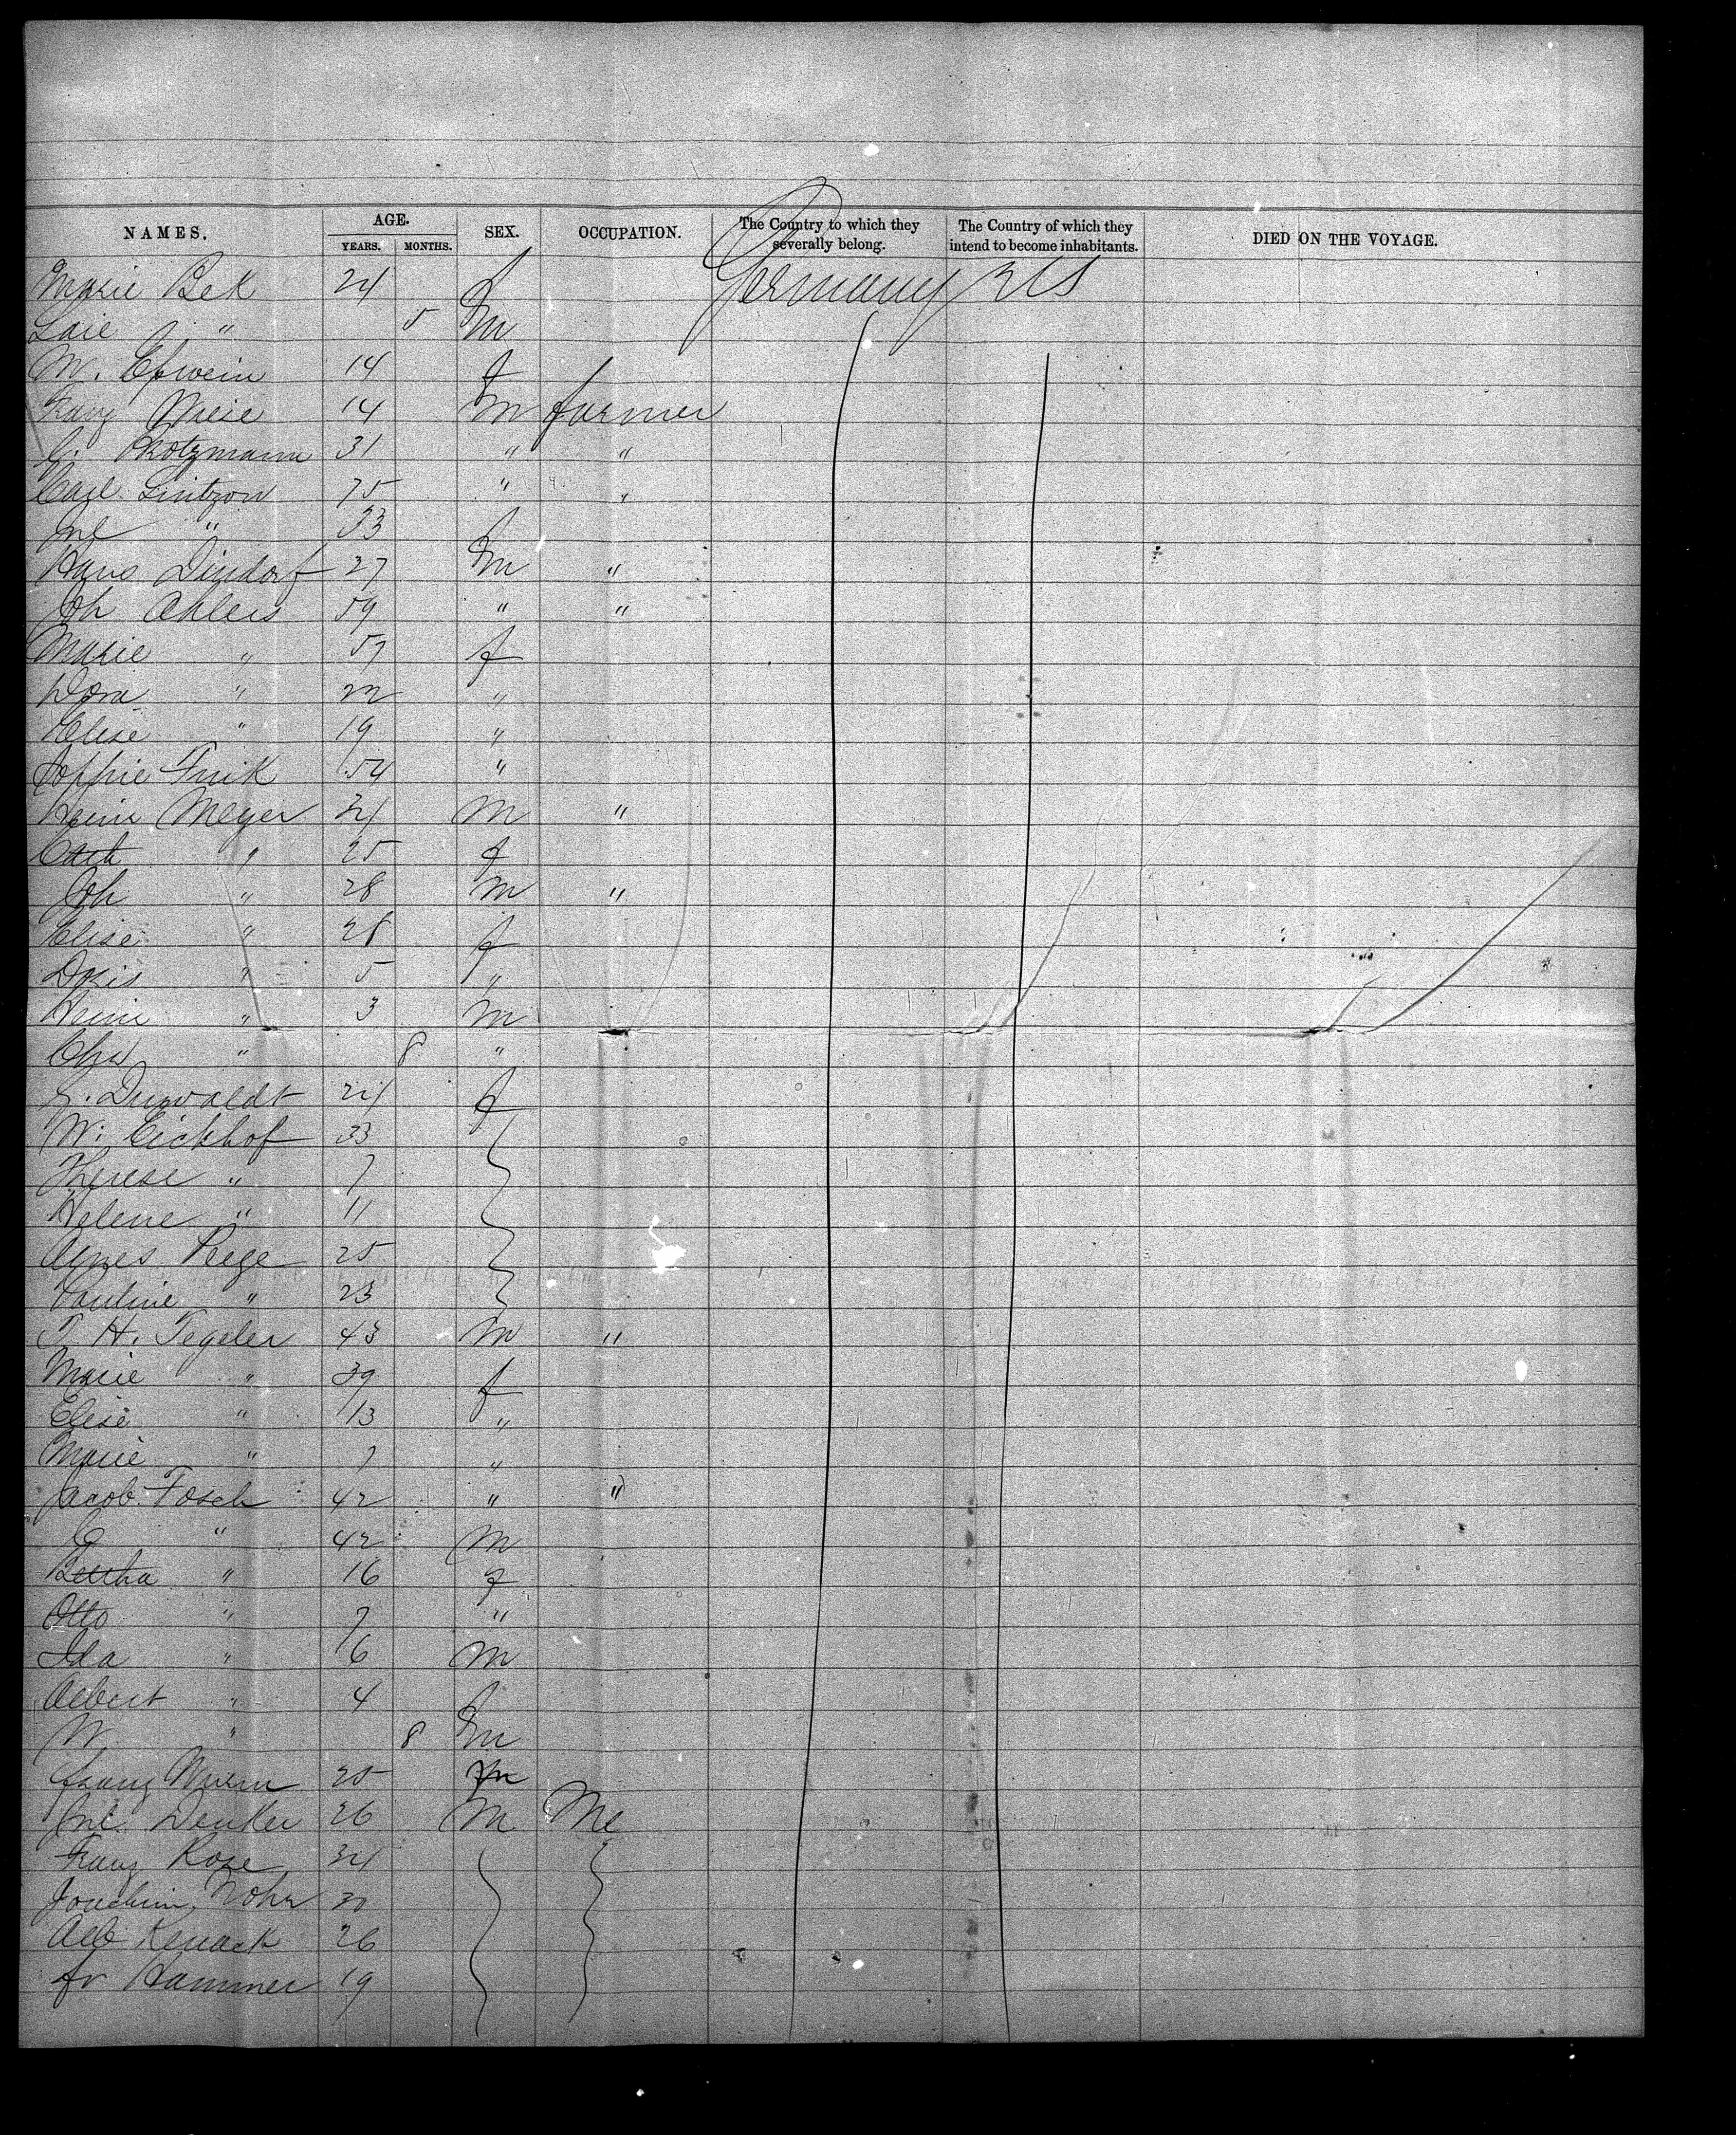 NAMES. AGE. YEARS. MONTHS. SEX. OCCUPATION. The Country to which they severally belong. The Country of which they intend to become inhabitants. DIED ON THE VOYAGE.
Marie Bek 24 f Germany U S
" 5 m
M. 14 f
14 m farmer
31 " "
Carl 75 " "
" 33 f
Hans Dindorf 27 m "
Joh Ahlers 59 " "
Marie " 57 f
Dora " 22 "
Elise " 19 "
Soffie Frik 54 "
Heinr Meyer 34 m "
Cath " 25 f
Joh " 28 m "
Elise " 28 f
Doris " 5 "
Heinr " 3 m
Chr " 8 "
24 f
W. Eickhof 33
Therese " 7
Helene " 11
Agnes 25
Pauline " 23
T. H. Tegeler 43 m "
Marie " 39 f
Elise " 13 "
Marie " 7 "
Jacob Fosch 42 " "
C " 42 m
Bertha " 16 f
Otto " 7 "
Ida " 6 m
Albert " 4 f
W " 8 m
Franz 25 m
Denker 26 m Me
Franz Rose 34
Joachim Nohr 30
Alb 26
Fr Hammer 19